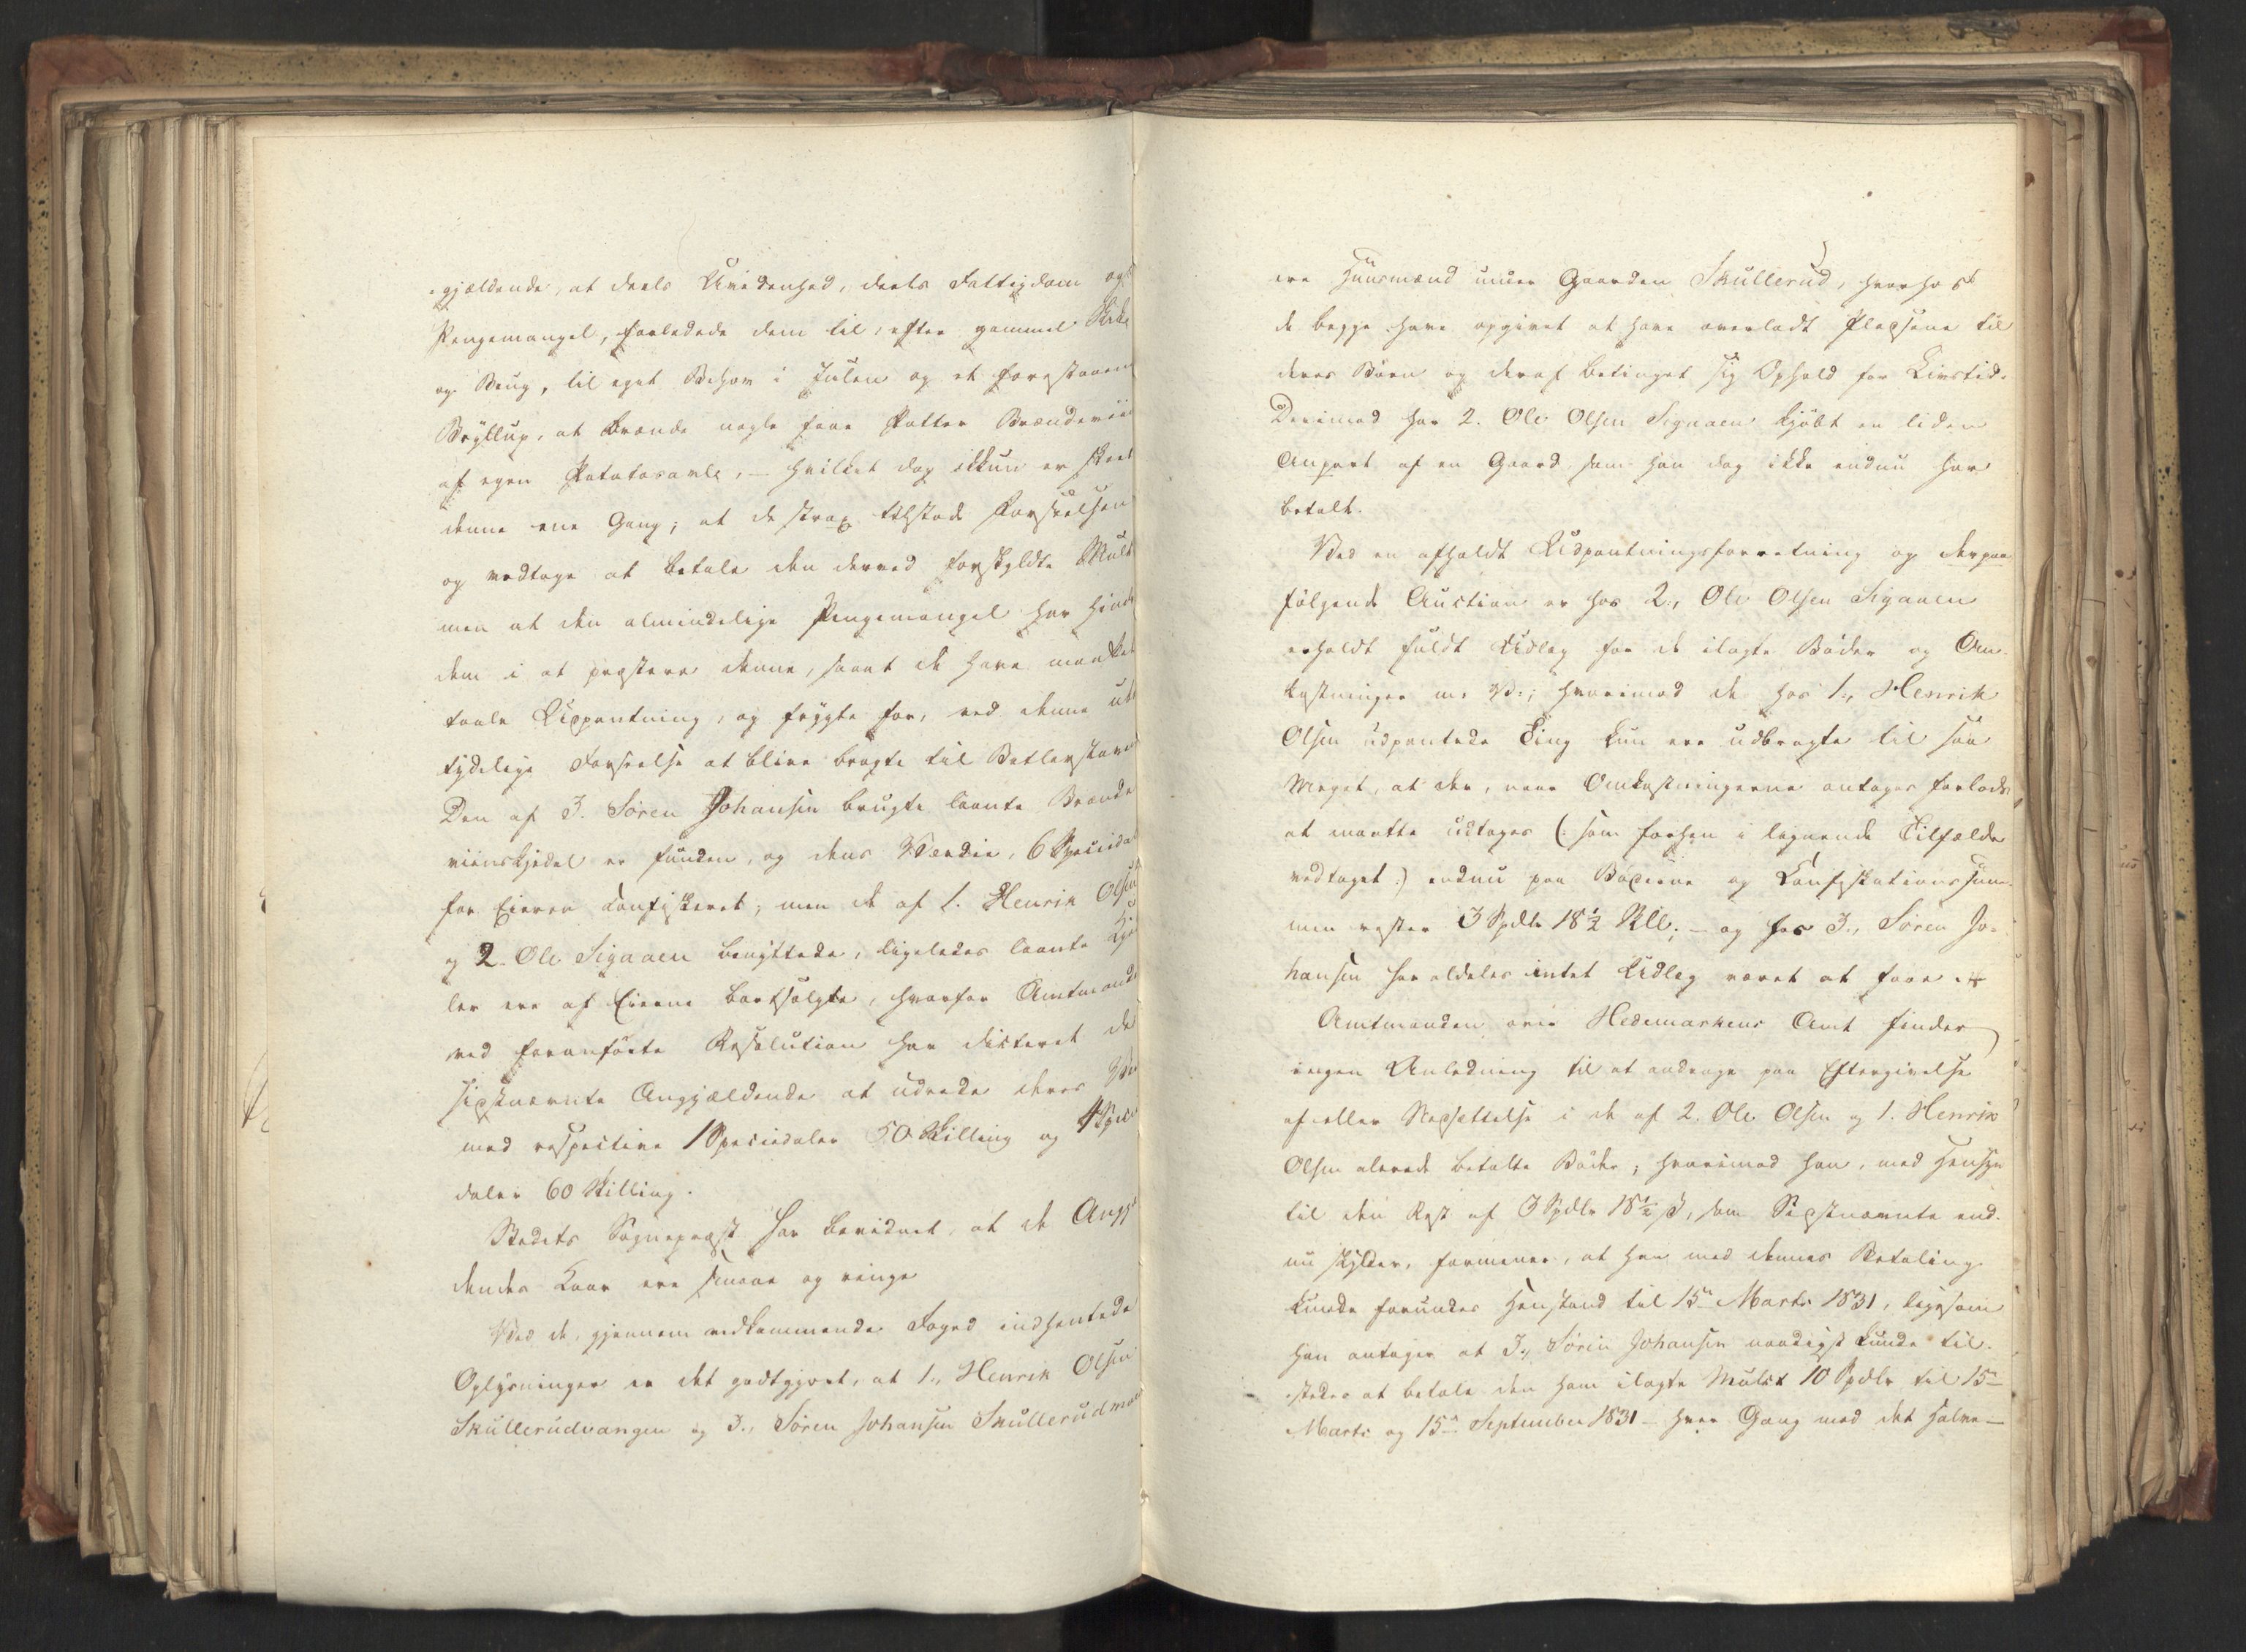 gjældende, at deels Uvidenhed, deels Fattigdom og
Pengemangel, forledede dem til, efter gammel Skik
og Brug, til eget Behov i Julen og et forestaaen
Bryllup, at brænde nogle faae Potter Brændeviin
af egen Potatosavle, – hvilket dog ikkun er skeet
denne ene Gang; at de strax tilstode Forseelsen
og vedtoge at betale den derved forskyldte Mulct
men at den almindelige Pengemangel har hind
dem i at præstere denne, samt de have maattet
taale Udpantning, og frygte for, ved denne ut
tydelige Forseelse at blive bragte til Betlerstaven
Den af 3. Søren Johansen brugte laante Brænde
viinskjedel er funden, og dens Værdie, 6 Speciedal
for Eieren konfiskeret; men de af 1. Henrik Olsen
og 2. Ole Sigaaen benyttede, ligeledes laante Kje
ler ere af Eierne bortsolgte, hvorfor Amtmande
ved foranførte Resolution har dicteret de
sidstnævnte Angjældende at udrede deres Vær
med respective 1 Speciedaler 50 Skilling og 4 Specie
daler 60 Skilling.
Stedets Sognepræst har bevidnet, at de Angjæ
dendes Kaar ere smaae og ringe
Ved de, gjennem vedkommende Foged indhentede
Oplysninger er det godtgjort, at 1., Henrik Olsen
Skullerudvangen og 3., Søren Johansen Skullerudmoe
ere Huusmænd under Gaarden Skullerud, hvorhos
de begge have opgivet at have overladt Pladsene til
deres Børn og deraf betinget sig Ophold for Livstid.
Derimod har 2. Ole Olsen Sigaaen kjøbt en liden
Anpart af en Gaard, som han dog ikke endnu har
betalt.
Ved en afholdt Udpantningsforretning og derpaa
følgende Auction er hos 2., Ole Olsen Sigaaen
erholdt fuldt Udlæg for de ilagte Bøder og Om-
kostninger m. V.; hvorimod de hos 1., Henrik
Olsen udpantede Ting kun ere udbragte til saa
Meget, at der, naar Omkostningerne antages forlods
at maatte udtages (: som forhen i lignende Tilfælde
vedtaget :) endnu paa Bøderne og Konfiskationssum-
men rester 3 Spdlr 18½ Skll; – og hos 3., Søren Jo-
hansen har aldeles intet Udlæg været at faae.
Amtmanden over Hedemarkens Amt finder
ingen Anledning til at andrage paa Eftergivelse
af eller Nedsættelse i de af 2. Ole Olsen og 1. Henrik
Olsen alerede betalte Bøder; hvorimod han, med Hensyn
til den Rest af 3 Spdlr 18½ ß, som Sidstnævnte end-
nu skylder, formener, at han med dennes Betaling
kunde forundes Henstand til 15de Marts 1831, ligesom
han antager at 3., Søren Johansen naadigst kunde til-
stedes at betale den ham ilagte Mulct 10 Spdlr til 15de
Marts og 15de September 1831 – hver Gang med det Halve –